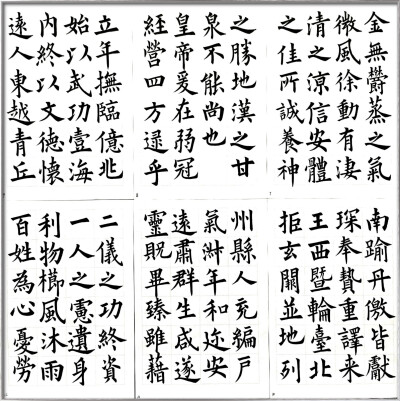 金無鬱蒸之氣
微風徐動有淒
清之涼信安體
之佳所誠養神
之勝地漢之甘
泉不能尚也
皇帝爰在弱冠
經營四方逮乎
立年撫臨億兆
始以武功壹海
內終以文德懷
遠人東越青丘
南踰丹徼皆獻
琛奉贄重譯来
王西暨輪臺北
拒玄闕並地列
州縣人充編戶
氣淑年和迩安
遠肅群生咸遂
靈貺畢臻雖藉
二儀之功終資
一人之慮遺身
利物櫛風沐雨
百姓為心憂勞